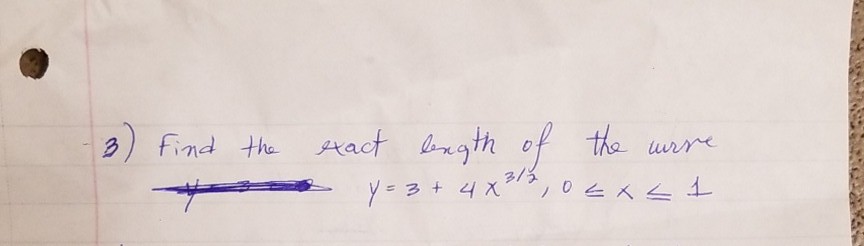 3) Find the exact length of the curve
y = 3 + 4x^3/2, 0 ≤ x ≤ 1